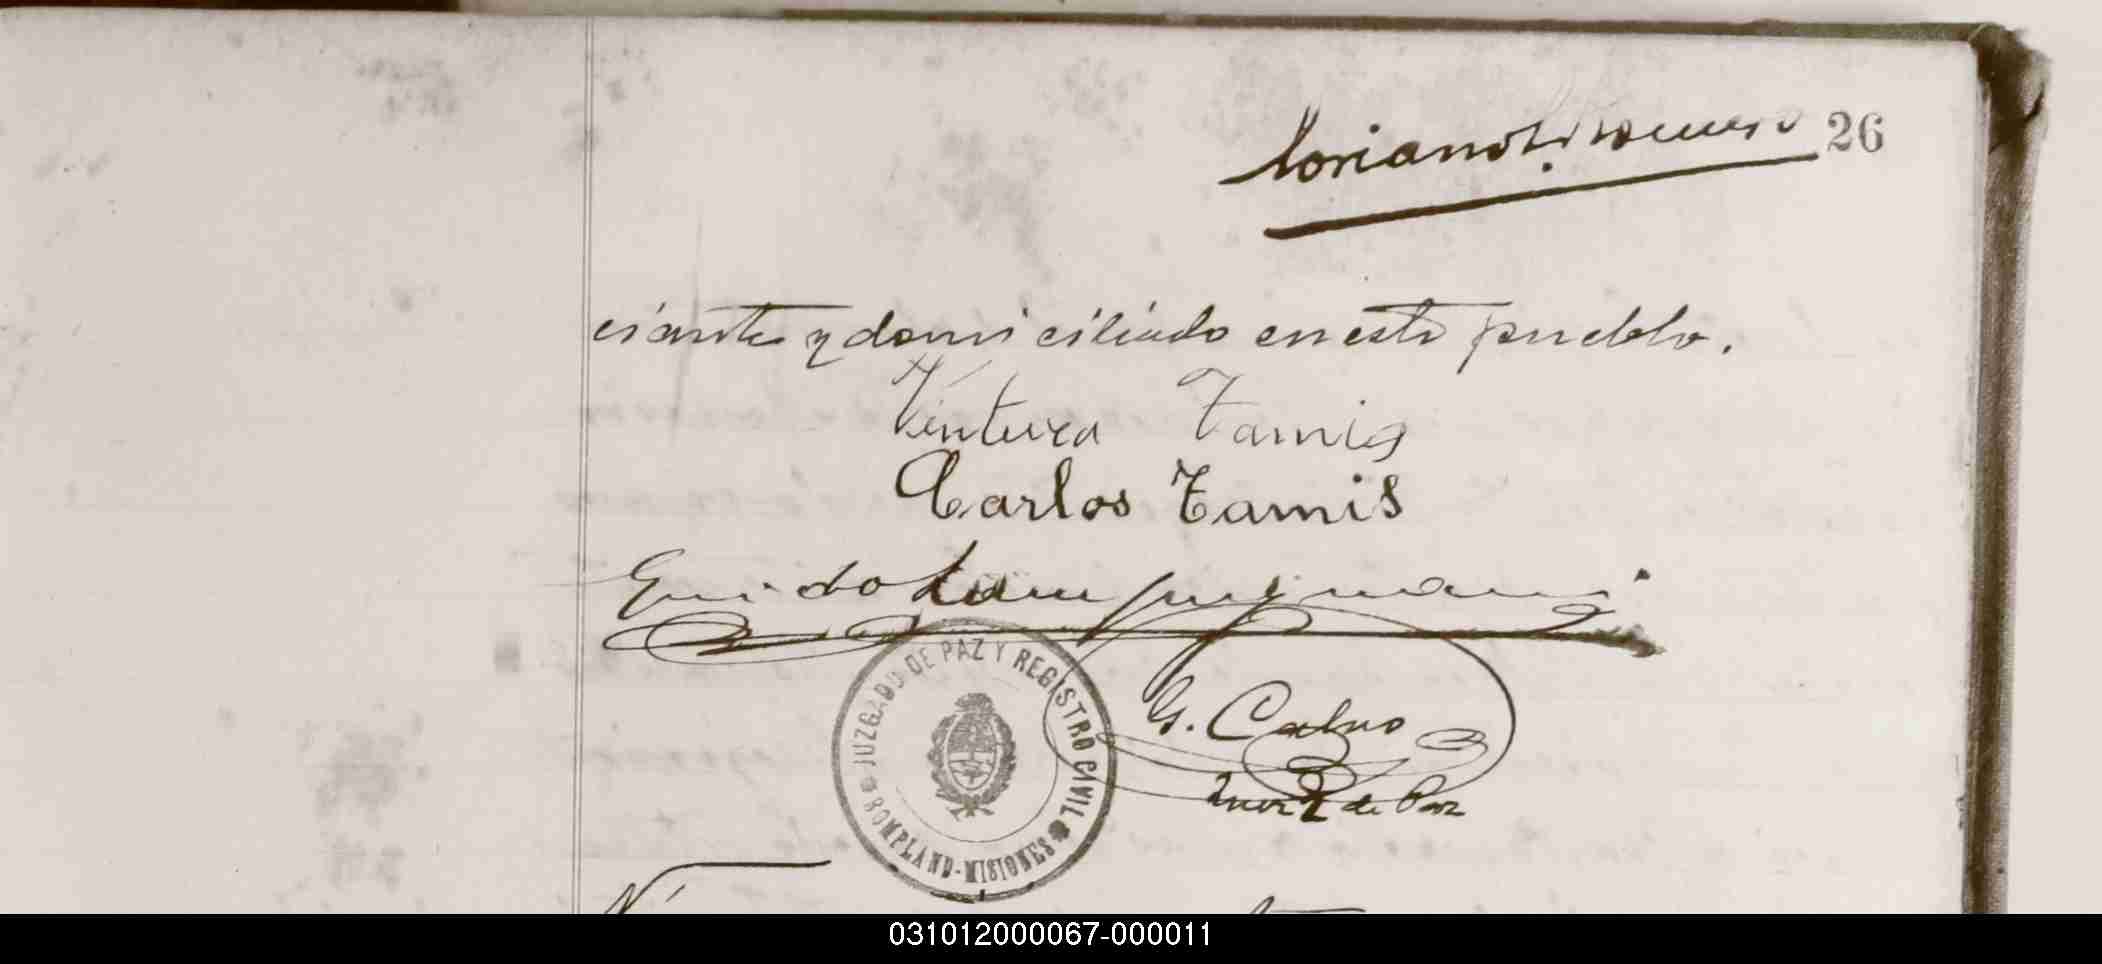 26
ciante y domiciliado en este pueblo.
Ventura Tamis
Carlos Tamis
Guido Lampugnani
JUZGADO DE PAZ Y REGISTRO CIVIL
BOMPLAND-MISIONES
G. Calvo
Juez de Paz
N
031012000067-000011